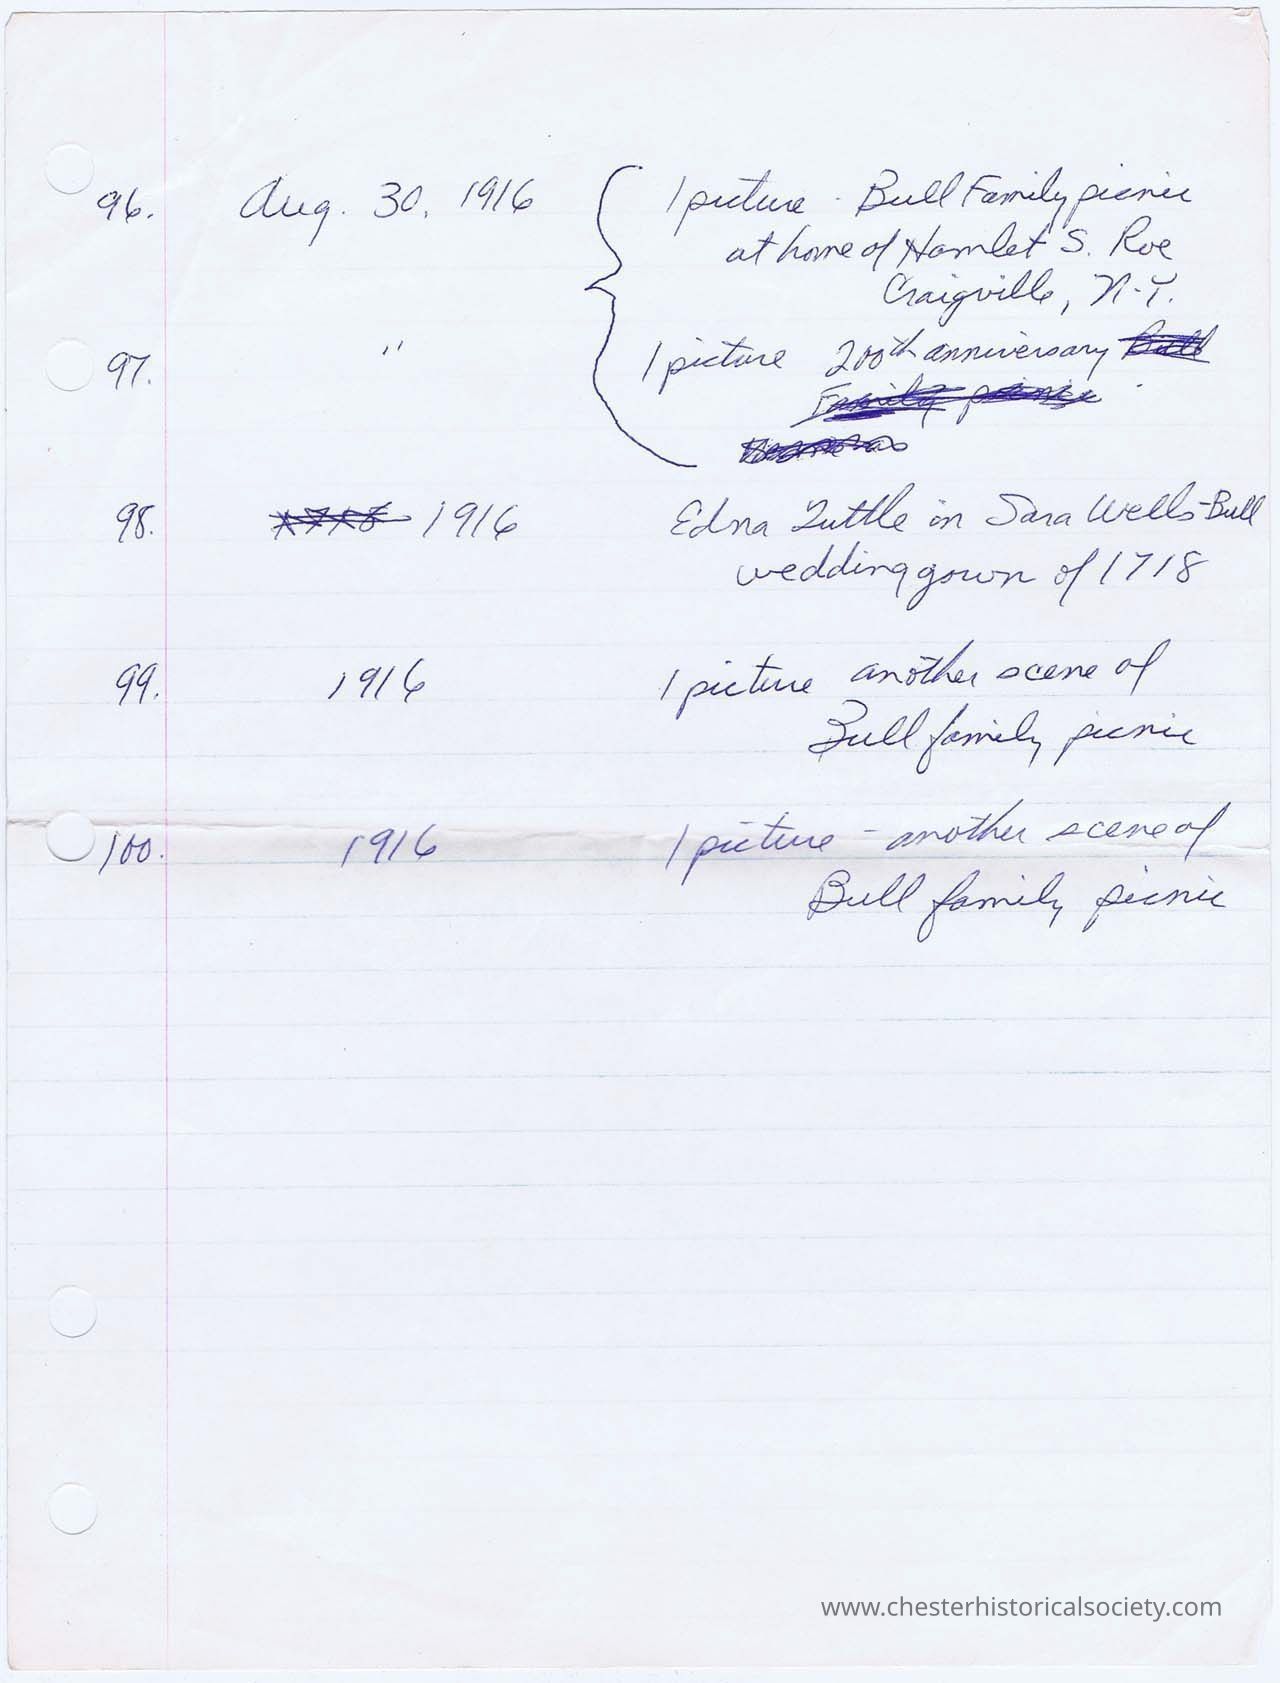 96. Aug. 30, 1916 1 picture - Bull Family picnic
at home of Hamlet S. Roe
Craigville, N.Y.
97. " 1 picture 200th anniversary Bull
Family picnic
98. 1718 1916 Edna Tuttle in Sara Wells-Bull
wedding gown of 1718
99. 1916 1 picture another scene of
Bull family picnic
100. 1916 1 picture - another scene of
Bull family picnic
www.chesterhistoricalsociety.com